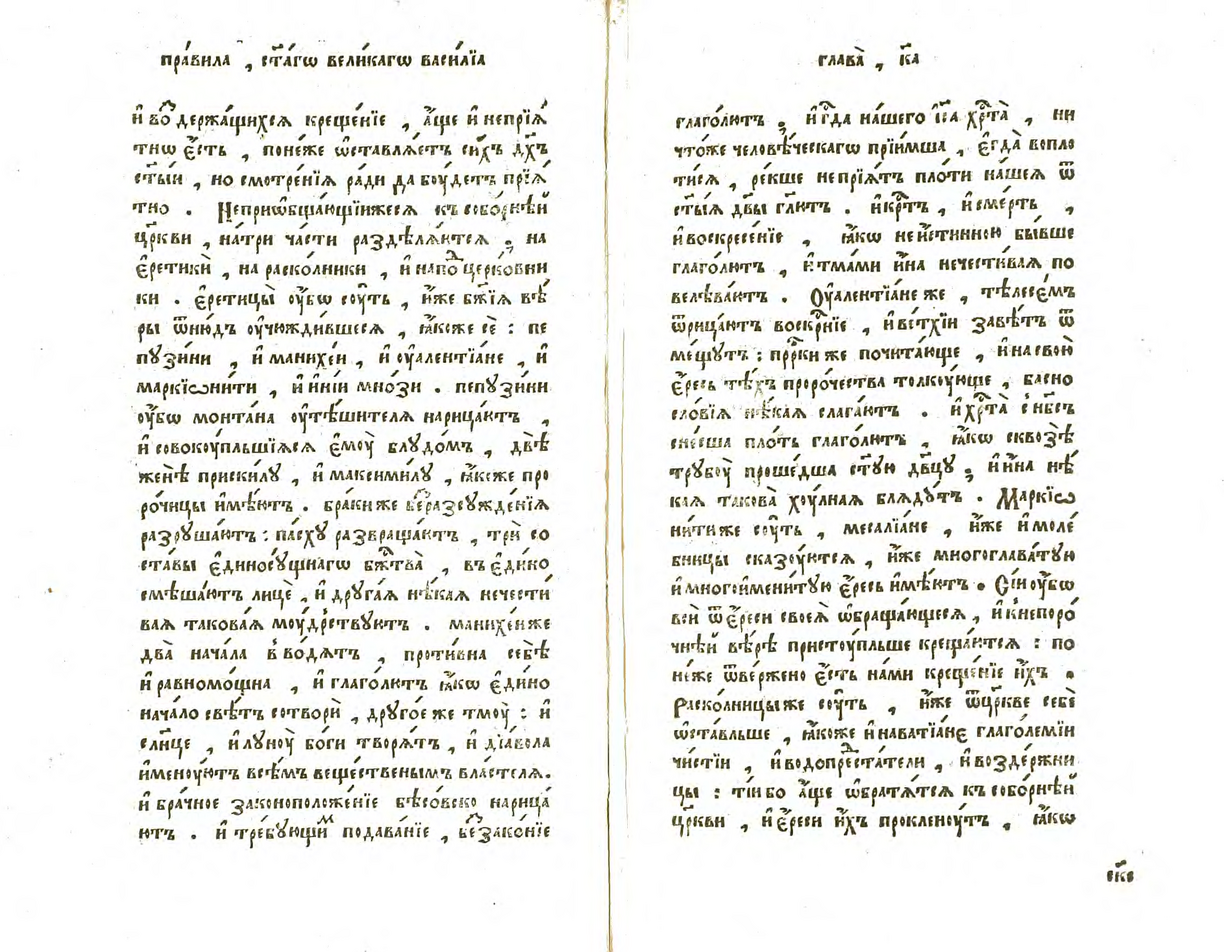 пра́вила , ст҃а́гѡ вели́кагѡ васи́лїа
и҆ во держа́щихсѧ креще́нїе , а҆́ще и҆ непрїѧ́
тнѡ є҆́сть , поне́же ѡ҆ставлѧ́етъ си́хъ дх҃ъ
ст҃ы́и , но смотре́нїѧ ра́ди да бꙋ́детъ прїѧ́
тно . Неприѡбща́ющїижесѧ къ собо́рнѣй
цр҃кви , на́три ча́сти раздѣлѧ́ютсѧ , на
є҆ретикѝ , на раско́лники , и҆ напоцерко́вни
ки . є҆рети́цы ᲂу҆́бѡ сꙋ́ть , и҆́же бж҃їѧ вѣ́
ры ѿню́дъ ᲂу҆чюжди́вшесѧ , ꙗ҆́коже сѐ : пе
пꙋзи́ни , и҆ манихе́и , и҆ ᲂу҆алентїа́не , и҆
маркїѡни́ти , и҆ и҆ні́и мно́зи . пепꙋзи́ни
ᲂу҆́бѡ монта́на ᲂу҆тѣ́шителѧ нарица́ютъ ,
и҆ совокꙋ́пльшїѧсѧ є҆мꙋ̀ блꙋдо́мъ , двѣ̀
женѣ̀ приски́лꙋ , и҆ максими́лꙋ , ꙗ҆́коже про
ро́чицы и҆мѣ́ютъ . бра́киже безразсꙋжде́нїѧ
разрꙋша́ютъ : па́схꙋ развраща́ютъ , трѝ со
ста́вы є҆диносꙋ́щнагѡ бж҃твà , въ є҆ди́но
смѣша́ютъ лицѐ , и҆ дрꙋга́ѧ нѣ́каѧ нечести́
ваѧ такова́ѧ мꙋ́дрствꙋютъ . манихе́иже
двà нача́ла в̾во́дѧтъ , проти́вна себѣ̀
и҆ равномо́щна , и҆ глаго́лютъ ꙗ҆́кѡ є҆ди́но
нача́ло свѣ́тъ сотворѝ , дрꙋго́е же тмꙋ̀ : и҆
сл҃нце , и҆ лꙋнꙋ̀ бо́ги творѧ́тъ , и҆ дїа́вола
и҆менꙋ́ютъ всѣ́мъ веще́ственымъ вла́стелѧ.
и҆ бра́чное законоположе́нїе бѣсо́вско нарица́
ютъ . и҆ тре́бꙋющим подава́нїе , беззако́нїе
глава̀ , к҃а
глаго́лютъ , и҆ гд҃а на́шего і҆с҃а хр҃тà , ни
что́же человѣ́ческагѡ прїи́мша , є҆гда̀ вопло
ти́сѧ , ре́кше непрїѧ́тъ пло́ти на́шеѧ ѿ
ст҃ы́ѧ дв҃ы гл҃ютъ . и҆ кр҃тъ , и҆ сме́рть ,
и҆ воскресе́нїе , ꙗ҆́кѡ неи҆́стинною бы́вше
глаго́лютъ , и҆ тма́ми и҆́на нечести́ваѧ по
велѣва́ютъ . Оу҆алентїа́не же , тѣлесе́мъ
ѿрица́ютъ воскр҃нїе , и҆ ве́тхїи завѣ́тъ ѿ
ме́щꙋтъ : пр҃рки же почита́юще , и҆ насвою̀
є҆́ресь тѣ́хъ проро́чества толкꙋ́юще , басно
сло́вїѧ нѣ́каѧ слага́ютъ . и҆ хр҃тà с нб҃съ
сне́сша пло́ть глаго́лютъ , ꙗ҆́кѡ сквозѣ̀
трꙋбꙋ̀ проше́дша ст҃ꙋю дв҃цꙋ , и҆ и҆́на нѣ́
каѧ такова̀ хꙋ́лнаѧ блѧдꙋ́тъ . Маркїѡ
ни́тиже сꙋ́ть , месалїа́не , и҆́же и҆ моле́
бницы сказꙋ́ютсѧ , и҆́же многоглава́тꙋю
и҆ многоимени́тꙋю є҆́ресь и҆мѣ́ютъ . Сі́и ᲂу҆́бѡ
всѝ ѿ є҆́реси своеѧ̀ ѡ҆браща́ющесѧ , и҆ к непоро́
чнѣй вѣ́рѣ пристꙋ́пльше креща́ютсѧ : по
не́же ѿве́ржено є҆́сть на́ми креще́нїе и҆́хъ .
Раско́лницы же сꙋ́ть , и҆́же ѿ цр҃кве себѐ
ѡ҆ста́вльше , ꙗ҆́коже и҆ наватїа́не глаго́лемїи
чи́стїи , и҆ водопреста́тели , и҆ возде́ржни
цы : ті́и бо а҆́ще ѡ҆братѧ́тсѧ къ собо́рнѣй
цр҃кви , и҆ є҆́реси и҆́хъ проклену́тъ , ꙗ҆́кѡ